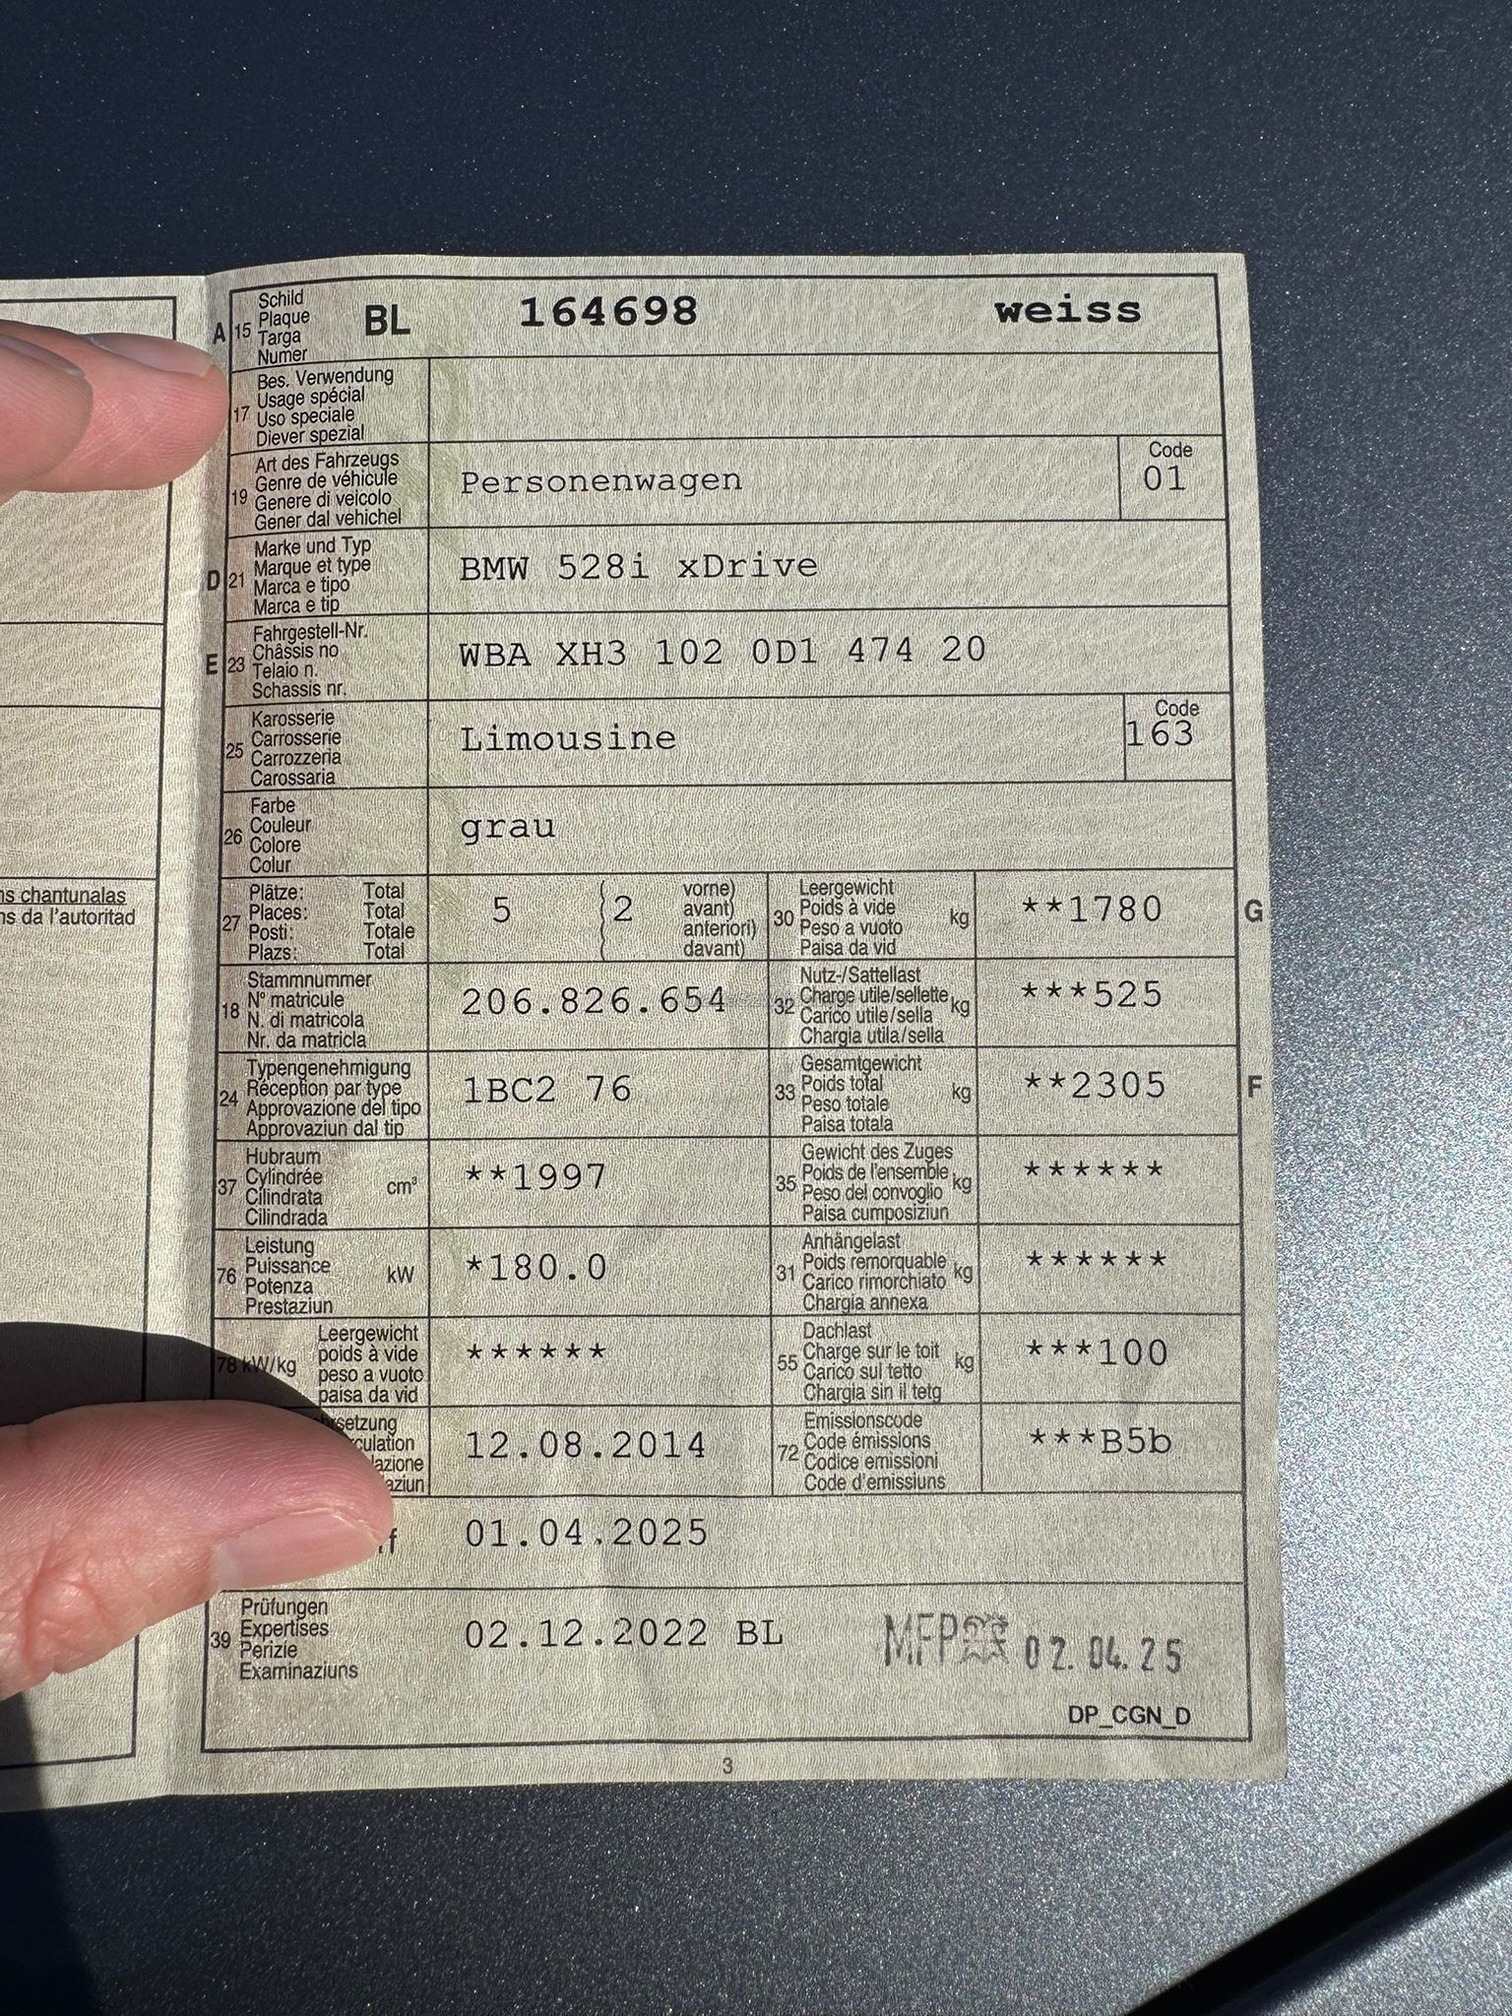 A 15 Schild
Plaque
Targa
Numer
BL 164698 weiss
17 Bes. Verwendung
Usage spécial
Uso speciale
Diever spezial
19 Art des Fahrzeugs
Genre de véhicule
Genere di veicolo
Gener dal vehichel
Personenwagen
Code
01
D 21 Marke und Typ
Marque et type
Marca e tipo
Marca e tip
BMW 528i xDrive
E 23 Fahrgestell-Nr.
Châssis no
Telaio n.
Schassis nr.
WBA XH3 102 0D1 474 20
25 Karosserie
Carrosserie
Carrozzeria
Carossaria
Limousine
Code
163
26 Farbe
Couleur
Colore
Colur
grau
ns chantunalas
ns da l'autoritad
27 Plätze: Total
Places: Total
Posti: Totale
Plazs: Total
5 2 vorne)
avant)
anteriori)
davant)
30 Leergewicht
Poids à vide kg
Peso a vuoto
Paisa da vid
**1780
G
18 Stammnummer
N° matricule
N. di matricola
Nr. da matricla
206.826.654
32 Nutz-/Sattellast
Charge utile/sellette kg
Carico utile/sella
Chargia utila/sella
***525
24 Typengenehmigung
Réception par type
Approvazione del tipo
Approvaziun dal tip
1BC2 76
33 Gesamtgewicht
Poids total kg
Peso totale
Paisa totala
**2305
F
37 Hubraum
Cylindrée cm³
Cilindrata
Cilindrada
**1997
35 Gewicht des Zuges
Poids de l'ensemble kg
Peso del convoglio
Paisa cumposiziun
******
76 Leistung
Puissance kW
Potenza
Prestaziun
*180.0
31 Anhängelast
Poids remorquable kg
Carico rimorchiato
Chargia annexa
******
78 kW/kg Leergewicht
poids à vide
peso a vuoto
paisa da vid
******
55 Dachlast
Charge sur le toit kg
Carico sul tetto
Chargia sin il tetg
***100
setzung
culation
lazione
aziun
12.08.2014
72 Emissionscode
Code émissions
Codice emissioni
Code d'emissiuns
***B5b
01.04.2025
39 Prüfungen
Expertises
Perizie
Examinaziuns
02.12.2022 BL
MFP 02.04.25
DP_CGN_D
3